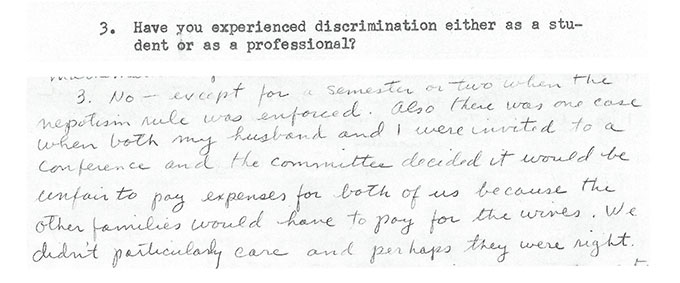 3. Have you experienced discrimination either as a stu-
dent or as a professional?
3. No – except for a semester or two when the
nepotism rule was enforced. Also there was one case
when both my husband and I were invited to a
conference and the committee decided it would be
unfair to pay expenses for both of us because the
other families would have to pay for the wives. We
didn't particularly care and perhaps they were right.